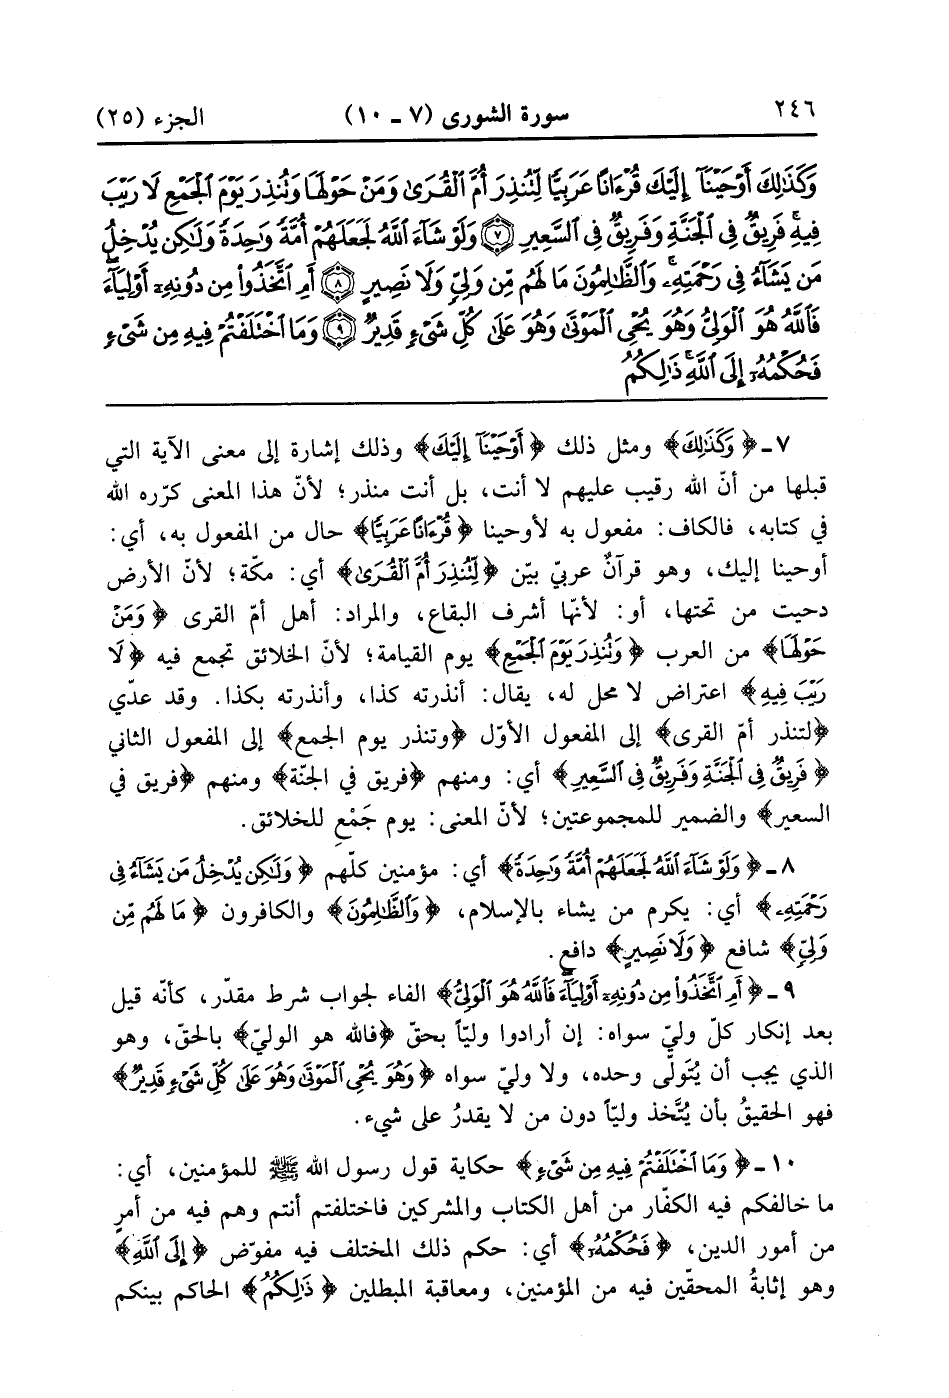 ٢٤٦ سورة الشورى (٧ - ١٠) الجزء (٢٥)
وَكَذَٰلِكَ أَوْحَيْنَآ إِلَيْكَ قُرْءَانًا عَرَبِيًّا لِّتُنذِرَ أُمَّ ٱلْقُرَىٰ وَمَنْ حَوْلَهَا وَتُنذِرَ يَوْمَ ٱلْجَمْعِ لَا رَيْبَ
فِيهِ ۚ فَرِيقٌ فِى ٱلْجَنَّةِ وَفَرِيقٌ فِى ٱلسَّعِيرِ ۝٧ وَلَوْ شَآءَ ٱللَّهُ لَجَعَلَهُمْ أُمَّةً وَٰحِدَةً وَلَٰكِن يُدْخِلُ
مَن يَشَآءُ فِى رَحْمَتِهِۦ ۚ وَٱلظَّٰلِمُونَ مَا لَهُم مِّن وَلِىٍّ وَلَا نَصِيرٍ ۝٨ أَمِ ٱتَّخَذُوا۟ مِن دُونِهِۦٓ أَوْلِيَآءَ ۖ
فَٱللَّهُ هُوَ ٱلْوَلِىُّ وَهُوَ يُحْىِ ٱلْمَوْتَىٰ وَهُوَ عَلَىٰ كُلِّ شَىْءٍ قَدِيرٌ ۝٩ وَمَا ٱخْتَلَفْتُمْ فِيهِ مِن شَىْءٍ
فَحُكْمُهُۥٓ إِلَى ٱللَّهِ ۚ ذَٰلِكُمُ
٧ - ﴿وَكَذَٰلِكَ﴾ ومثل ذلك ﴿أَوْحَيْنَآ إِلَيْكَ﴾ وذلك إشارة إلى معنى الآية التي
قبلها من أنّ الله رقيب عليهم لا أنت، بل أنت منذر؛ لأنّ هذا المعنى كرّره الله
في كتابه، فالكاف: مفعول به لأوحينا ﴿قُرْءَانًا عَرَبِيًّا﴾ حال من المفعول به، أي:
أوحينا إليك، وهو قرآنٌ عربيّ بيّن ﴿لِّتُنذِرَ أُمَّ ٱلْقُرَىٰ﴾ أي: مكّة؛ لأنّ الأرض
دحيت من تحتها، أو: لأنّها أشرف البقاع، والمراد: أهل أمّ القرى ﴿وَمَنْ
حَوْلَهَا﴾ من العرب ﴿وَتُنذِرَ يَوْمَ ٱلْجَمْعِ﴾ يوم القيامة؛ لأنّ الخلائق تجمع فيه ﴿لَا
رَيْبَ فِيهِ﴾ اعتراض لا محل له، يقال: أنذرته كذا، وأنذرته بكذا. وقد عدّي
﴿لتنذر أمّ القرى﴾ إلى المفعول الأوّل ﴿وتنذر يوم الجمع﴾ إلى المفعول الثاني
﴿فَرِيقٌ فِى ٱلْجَنَّةِ وَفَرِيقٌ فِى ٱلسَّعِيرِ﴾ أي: ومنهم ﴿فريق في الجنّة﴾ ومنهم ﴿فريق في
السعير﴾ والضمير للمجموعتين؛ لأنّ المعنى: يوم جَمْعِ للخلائق.
٨ - ﴿وَلَوْ شَآءَ ٱللَّهُ لَجَعَلَهُمْ أُمَّةً وَٰحِدَةً﴾ أي: مؤمنين كلّهم ﴿وَلَٰكِن يُدْخِلُ مَن يَشَآءُ فِى
رَحْمَتِهِۦ﴾ أي: يكرم من يشاء بالإسلام، ﴿وَٱلظَّٰلِمُونَ﴾ والكافرون ﴿مَا لَهُم مِّن
وَلِىٍّ﴾ شافع ﴿وَلَا نَصِيرٍ﴾ دافع.
٩ - ﴿أَمِ ٱتَّخَذُوا۟ مِن دُونِهِۦٓ أَوْلِيَآءَ ۖ فَٱللَّهُ هُوَ ٱلْوَلِىُّ﴾ الفاء لجواب شرط مقدّر، كأنّه قيل
بعد إنكار كلّ وليّ سواه: إن أرادوا وليّاً بحقّ ﴿فالله هو الوليّ﴾ بالحقّ، وهو
الذي يجب أن يُتَولَّى وحده، ولا وليّ سواه ﴿وَهُوَ يُحْىِ ٱلْمَوْتَىٰ وَهُوَ عَلَىٰ كُلِّ شَىْءٍ قَدِيرٌ﴾
فهو الحقيقُ بأن يُتَّخذ وليّاً دون من لا يقدرُ على شيء.
١٠ - ﴿وَمَا ٱخْتَلَفْتُمْ فِيهِ مِن شَىْءٍ﴾ حكاية قول رسول الله ﷺ للمؤمنين، أي:
ما خالفكم فيه الكفّار من أهل الكتاب والمشركين فاختلفتم أنتم وهم فيه من أمرٍ
من أمور الدين، ﴿فَحُكْمُهُۥٓ﴾ أي: حكم ذلك المختلف فيه مفوّض ﴿إِلَى ٱللَّهِ﴾
وهو إثابةُ المحقّين فيه من المؤمنين، ومعاقبة المبطلين ﴿ذَٰلِكُمُ﴾ الحاكم بينكم